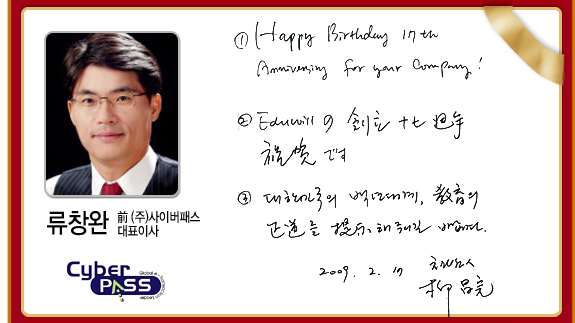 ① Happy Birthday 17th
Anniversary for your Company!
② Eduwill の 創立 十七 週年
祝賀 です
③ 대한민국의 백년대계, 教育의
正道를 提示해주시길 바랍니다.
2009. 2. 17
柳昌完
류창완 前 (주)사이버패스
대표이사
Cyber
PASS